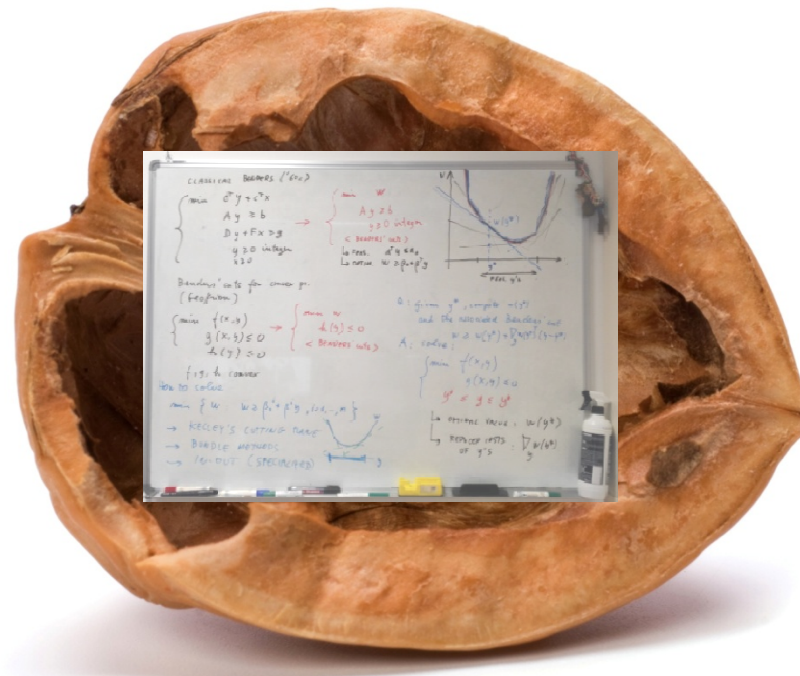 CLASSICAL BENDERS (1960)
min cᵀy + cᵀx
Ay ≥ b
Dy + Fx ≥ g
y ≥ 0 integer
x ≥ 0
→
min w
Ay ≥ b
y ≥ 0 integer
< BENDERS' CUTS >
w(y*)
y*
Benders' cuts for convex p.
(Geoffrion)
min f(x,y)
g(x,y) ≤ 0
h(y) ≤ 0
→
min w
h(y) ≤ 0
< BENDERS CUTS >
f, g, h CONVEX
HOW TO SOLVE
min { w
→ KELLEY'S CUTTING PLANE
→ BUNDLE METHODS
→ IN-OUT (SPECIALIZED)
Q: given y*, compute w(y*)
and the associated Benders' cut
A: solve:
min f(x,y)
g(x,y) ≤ 0
y* ≤ y ≤ y*
→ OPTIMAL VALUE: w(y*)
→ REDUCED COSTS
OF y'S